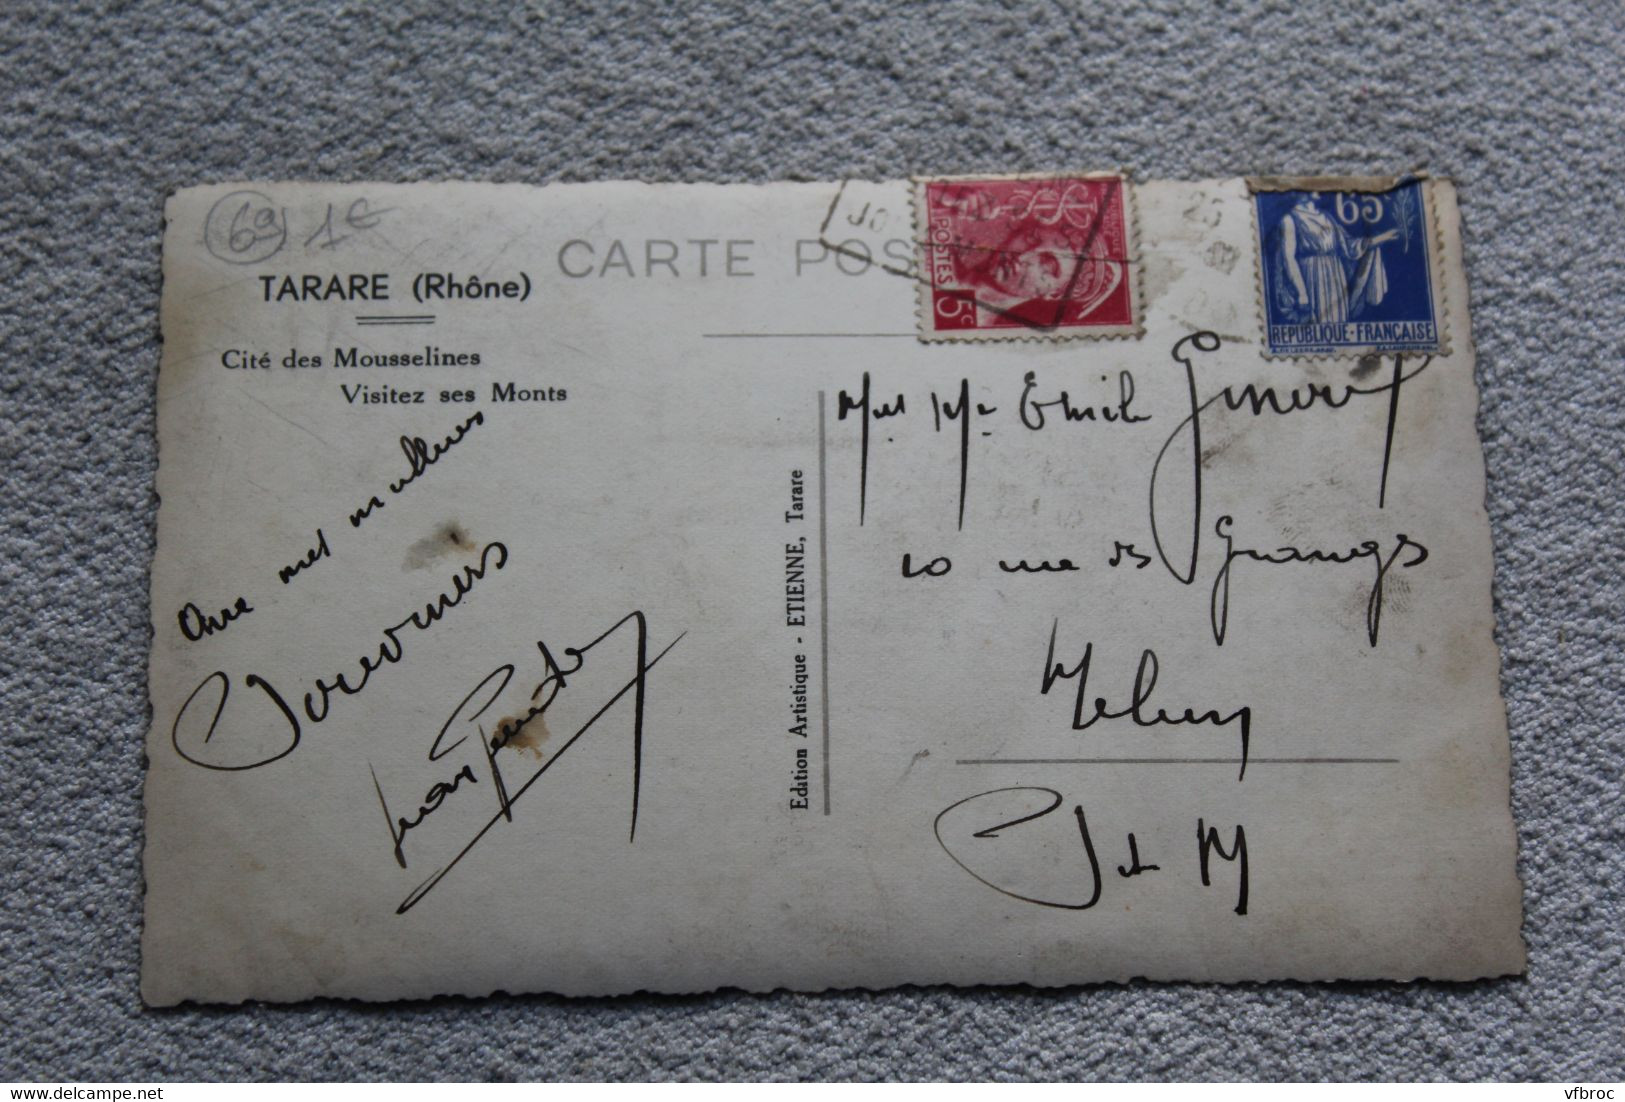 69 1€
CARTE POS
TARARE (Rhône)
Cité des Mousselines
Visitez ses Monts
POSTES
5c
65c
REPUBLIQUE-FRANÇAISE
Mr et Mme Emile
20 rue des Granges
Melun
S et M
Avec mes meilleurs
Souvenirs
Edition Artistique - ETIENNE, Tarare
delcampe.net
vfbroc